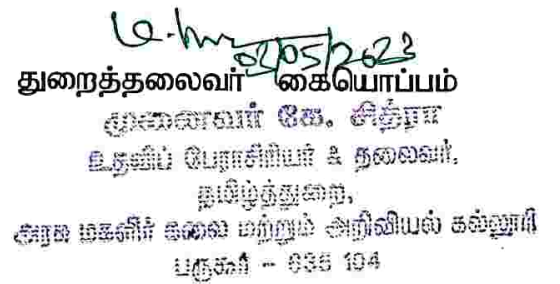 02/05/2023
துறைத்தலைவர் கையொப்பம்
முனைவர் கே. சித்ரா
உதவிப் பேராசிரியர் & தலைவர்,
தமிழ்த்துறை,
அரசு மகளிர் கலை மற்றும் அறிவியல் கல்லூரி
பருகூர் - 635 104